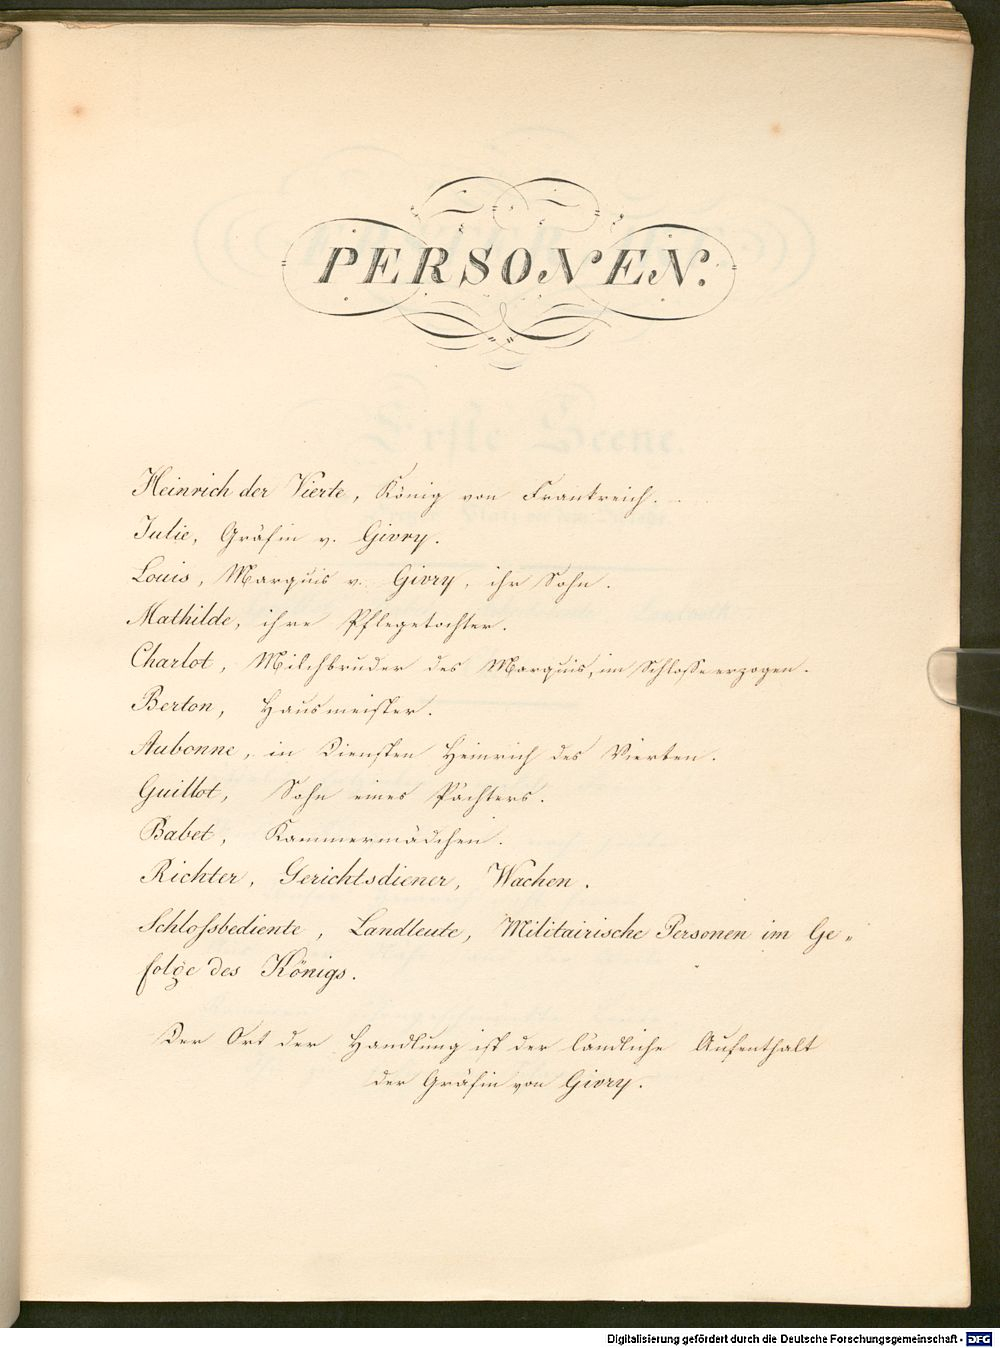 PERSONEN.
Heinrich der Vierte, König von Frankreich.
Julie, Gräfin v. Givry.
Louis, Marquis v. Givry, ihr Sohn.
Mathilde, ihre Pflegetochter.
Charlot, Milchbruder des Marquis, im Schlosse erzogen.
Berton, Hausmeister.
Aubonne, in Diensten Heinrich des Vierten.
Guillot, Sohn eines Pächters.
Babet, Kammermädchen.
Richter, Gerichtsdiener, Wachen.
Schlossbediente, Landleute, Militairische Personen im Ge=
folge des Königs.
Der Ort der Handlung ist der ländliche Aufenthalt
der Gräfin von Givry.
Digitalisierung gefördert durch die Deutsche Forschungsgemeinschaft - DFG